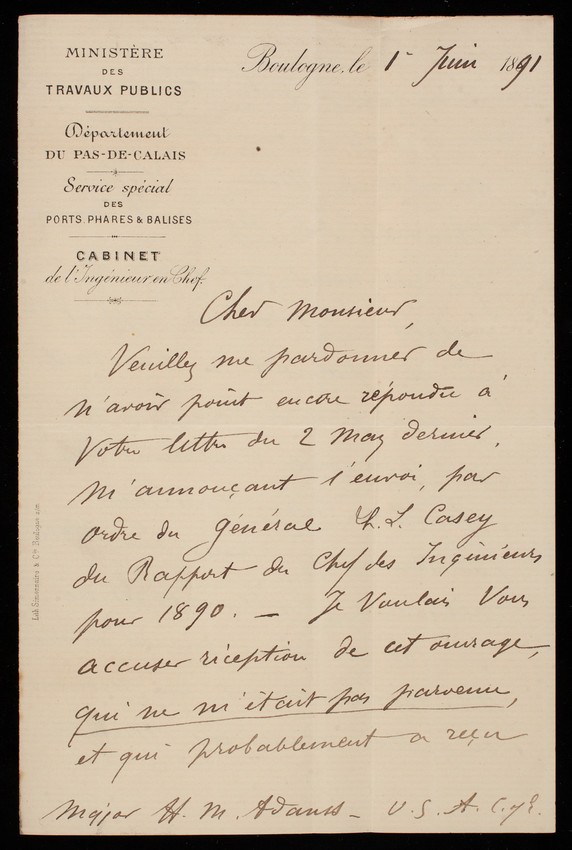 MINISTÈRE
DES
TRAVAUX PUBLICS
Département
DU PAS-DE-CALAIS
Service spécial
DES
PORTS, PHARES & BALISES
CABINET
de l'Ingénieur en Chef.
Boulogne, le 1er Juin 1891
Cher Monsieur,
Veuillez me pardonner de
n'avoir point encore répondu à
votre lettre du 2 May dernier,
m'annonçant l'envoi, par
ordre du Général L. Casey
du Rapport du Chef des Ingénieurs
pour 1890. — Je voulais vous
accuser réception de cet ouvrage,
qui ne m'était pas parvenu,
et qui probablement a reçu
Major H. M. Adams — U. S. A. C. of E.
Lith. & Cie Boulogne s/m